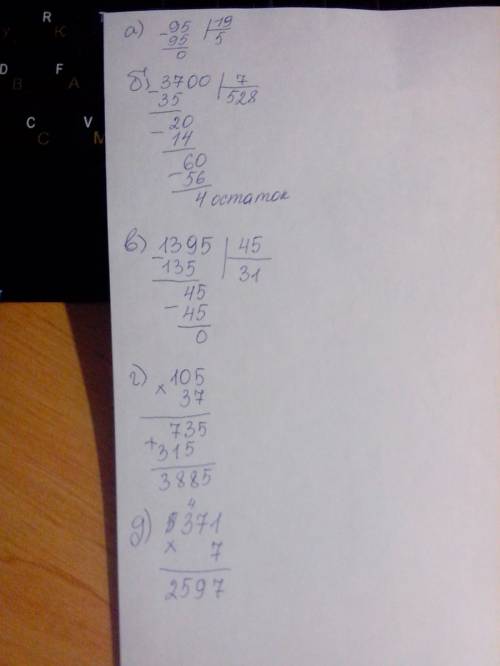 R
К
D
F
В
А
C
V
С
М
а) - 95 | 19
95 5
0
б) - 3700 | 7
35 528
- 20
14
- 60
- 56
4 остаток
в) - 1395 | 45
135 31
45
- 45
0
г) × 105
37
735
+ 315
3885
4
д) 371
× 7
2597